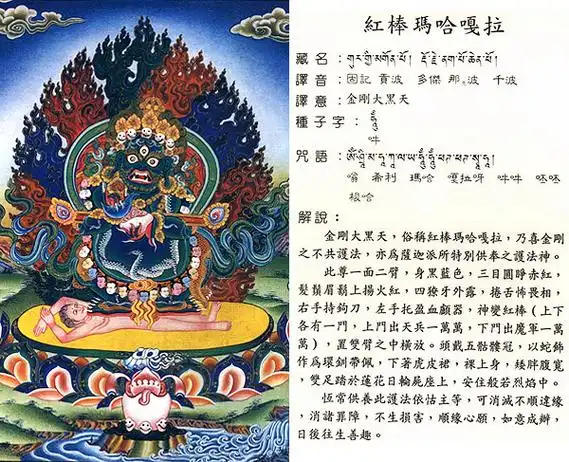 紅棒瑪哈嘎拉
藏名：གུར་གྱི་མགོན་པོ། རྡོ་རྗེ་ནག་པོ་ཆེན་པོ།
譯音：固記 貢波 多傑 那 波 千波
譯意：金剛大黑天
種子字：ཧཱུྃ
吽
咒語：ༀ་ཤྲཱི་མ་ཧཱ་ཀཱ་ལ་ཡ་ཧཱུྃ་ཧཱུྃ་ཕཊ་ཕཊ་སྭཱ་ཧཱ།
嗡 希利 瑪哈 嘎拉呀 吽吽 呸呸
梭哈
解說：
金剛大黑天，俗稱紅棒瑪哈嘎拉，乃喜金剛
之不共護法，亦爲薩迦派所特別供奉之護法神。
此尊一面二臂，身黑藍色，三目圓睜赤紅，
髮鬚眉鬍上揚火紅，四獠牙外露，捲舌怖畏相，
右手持鉤刀，左手托盈血顱器，神變紅棒（上下
各有一門，上門出天兵一萬萬，下門出魔軍一萬
萬），置雙臂之中橫放。頭戴五骷髏冠，以蛇飾
作爲環釧帶佩，下著虎皮裙，裸上身，矮胖腹寬，
雙足踏於蓮花日輪屍座上，安住般若烈焰中。
恆常供養此護法依怙主等，可消減不順違緣，
消諸罪障，不生損害，順緣心願，如意成辦，
日後往生善趣。